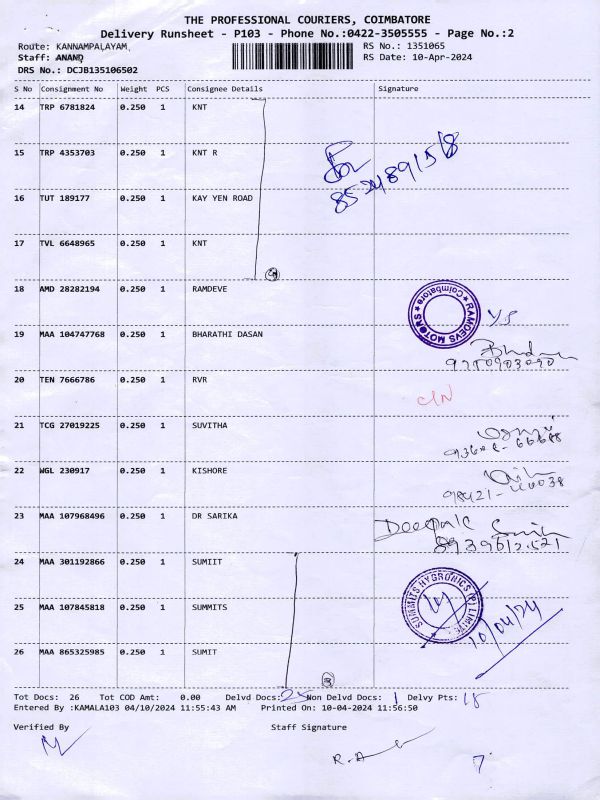 THE PROFESSIONAL COURIERS, COIMBATORE
Delivery Runsheet - P103 - Phone No.:0422-3505555 - Page No.:2
Route: KANNAMPALAYAM, RS No.: 1351065
Staff: ANAND RS Date: 10-Apr-2024
DRS No.: DCJB135106502
S No Consignment No Weight PCS Consignee Details Signature
14 TRP 6781824 0.250 1 KNT
15 TRP 4353703 0.250 1 KNT R
8524891518
16 TUT 189177 0.250 1 KAY YEN ROAD
17 TVL 6648965 0.250 1 KNT
18 AMD 28282194 0.250 1 RAMDEVE
RAMDEVS MOTORS ★ Coimbatore ★
19 MAA 104747768 0.250 1 BHARATHI DASAN
20 TEN 7666786 0.250 1 RVR
C/N
21 TCG 27019225 0.250 1 SUVITHA
22 WGL 230917 0.250 1 KISHORE
23 MAA 107968496 0.250 1 DR SARIKA
Deepak
24 MAA 301192866 0.250 1 SUMIIT
25 MAA 107845818 0.250 1 SUMMITS
SUMMITS HYGRONICS (P) LIMITED
10/04/24
26 MAA 865325985 0.250 1 SUMIT
3
Tot Docs: 26 Tot COD Amt: 0.00 Delvd Docs: 25 Non Delvd Docs: 1 Delvy Pts: 18
Entered By :KAMALA103 04/10/2024 11:55:43 AM Printed On: 10-04-2024 11:56:50
Verified By Staff Signature